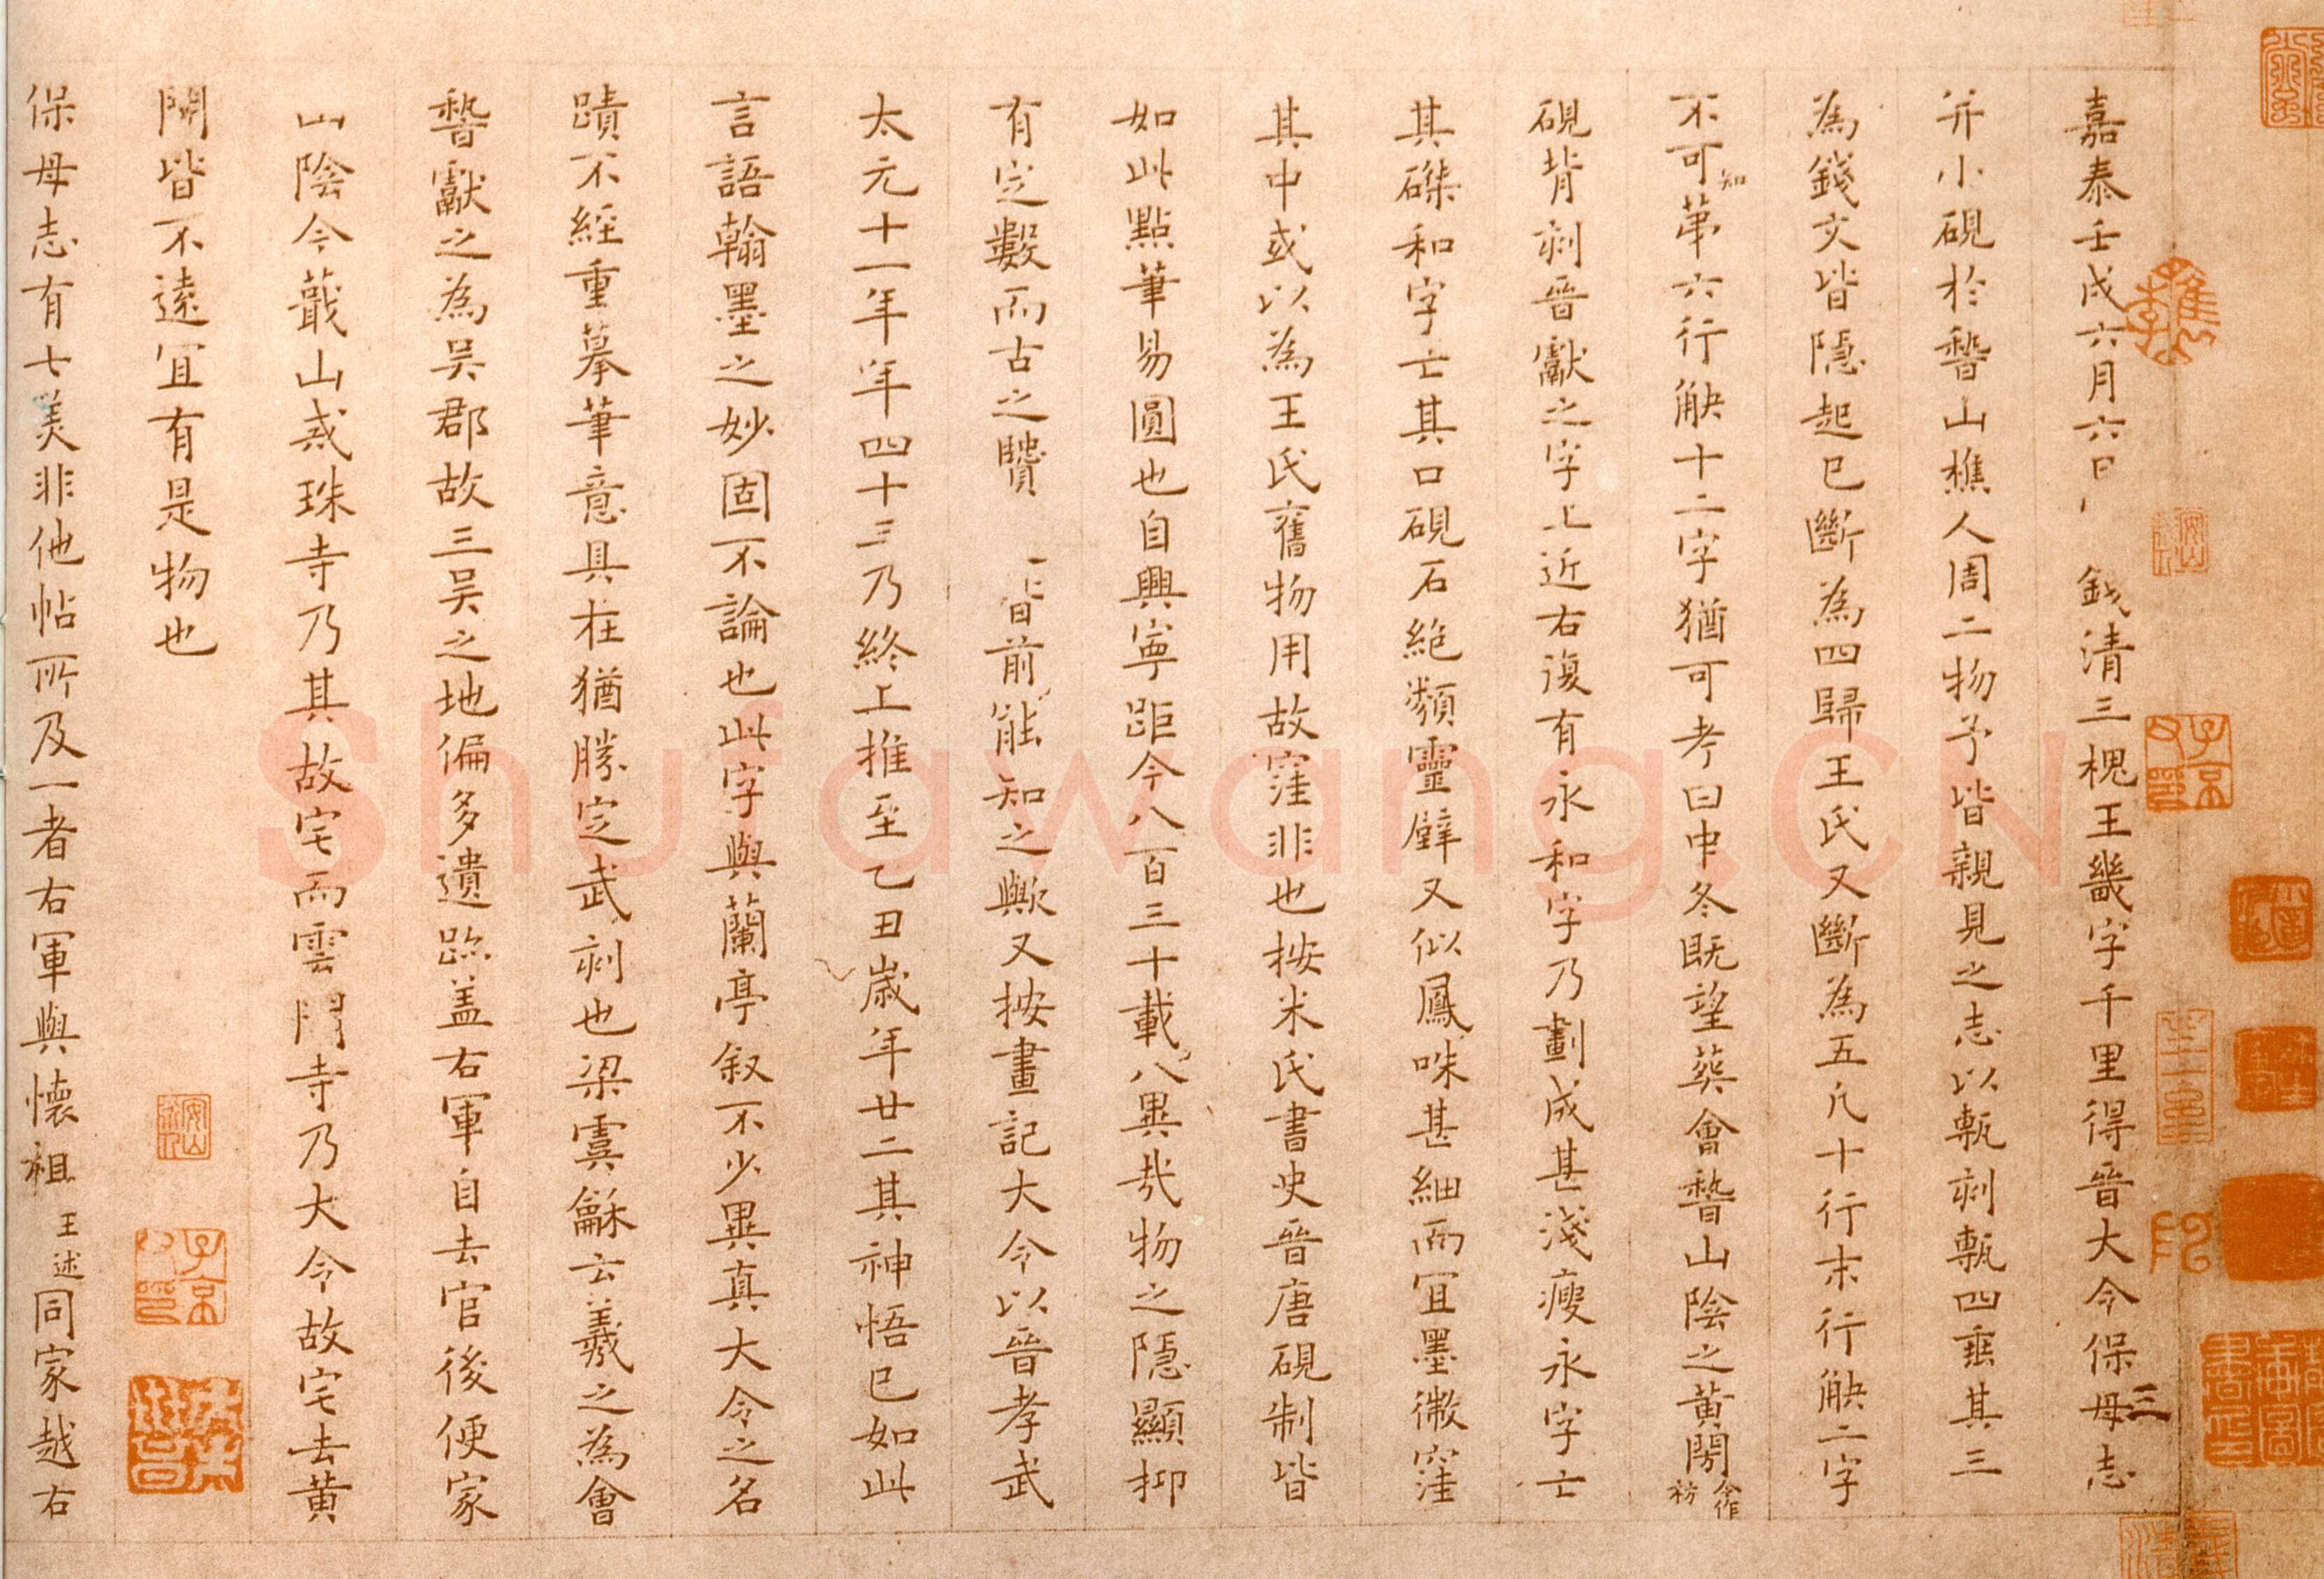 嘉泰壬戌六月六日 錢清三槐王畿字千里得晉大令保母志
并小硯於稽山樵人周二物予皆親見之志以甎刻甎四垂其三
為錢文皆隱起已斷為四歸王氏又斷為五凡十行末行觖二字
不可知第六行觖十二字猶可考曰中冬既望葬會稽山陰之黃閍合作祊
硯背刻晉獻之字上近右復有永和字乃劃成甚淺瘦永字亡
其磔和字亡其口硯石絕類靈璧又似鳳咮甚細而宜墨微窪
其中或以為王氏舊物用故窪非也按米氏書史晉唐硯制皆
如此點筆易圓也自興寧距今八百三十載八異哉物之隱顯抑
有定數而古之賢 者前能知之歟又按畫記大令以晉孝武
太元十一年年四十三乃終上推至乙丑歲年廿二其神悟已如此
言語翰墨之妙固不論也此字與蘭亭叙不少異真大令之名
蹟不經重摹筆意具在猶勝定武刻也梁虞龢云羲之為會
稽獻之為吳郡故三吳之地偏多遺跡盖右軍自去官後便家
山陰今蕺山戒珠寺乃其故宅而雲門寺乃大令故宅去黃
閍皆不遠宜有是物也
保母志有七美非他帖所及一者右軍與懷祖王述同家越右
三
Shufawang.CN